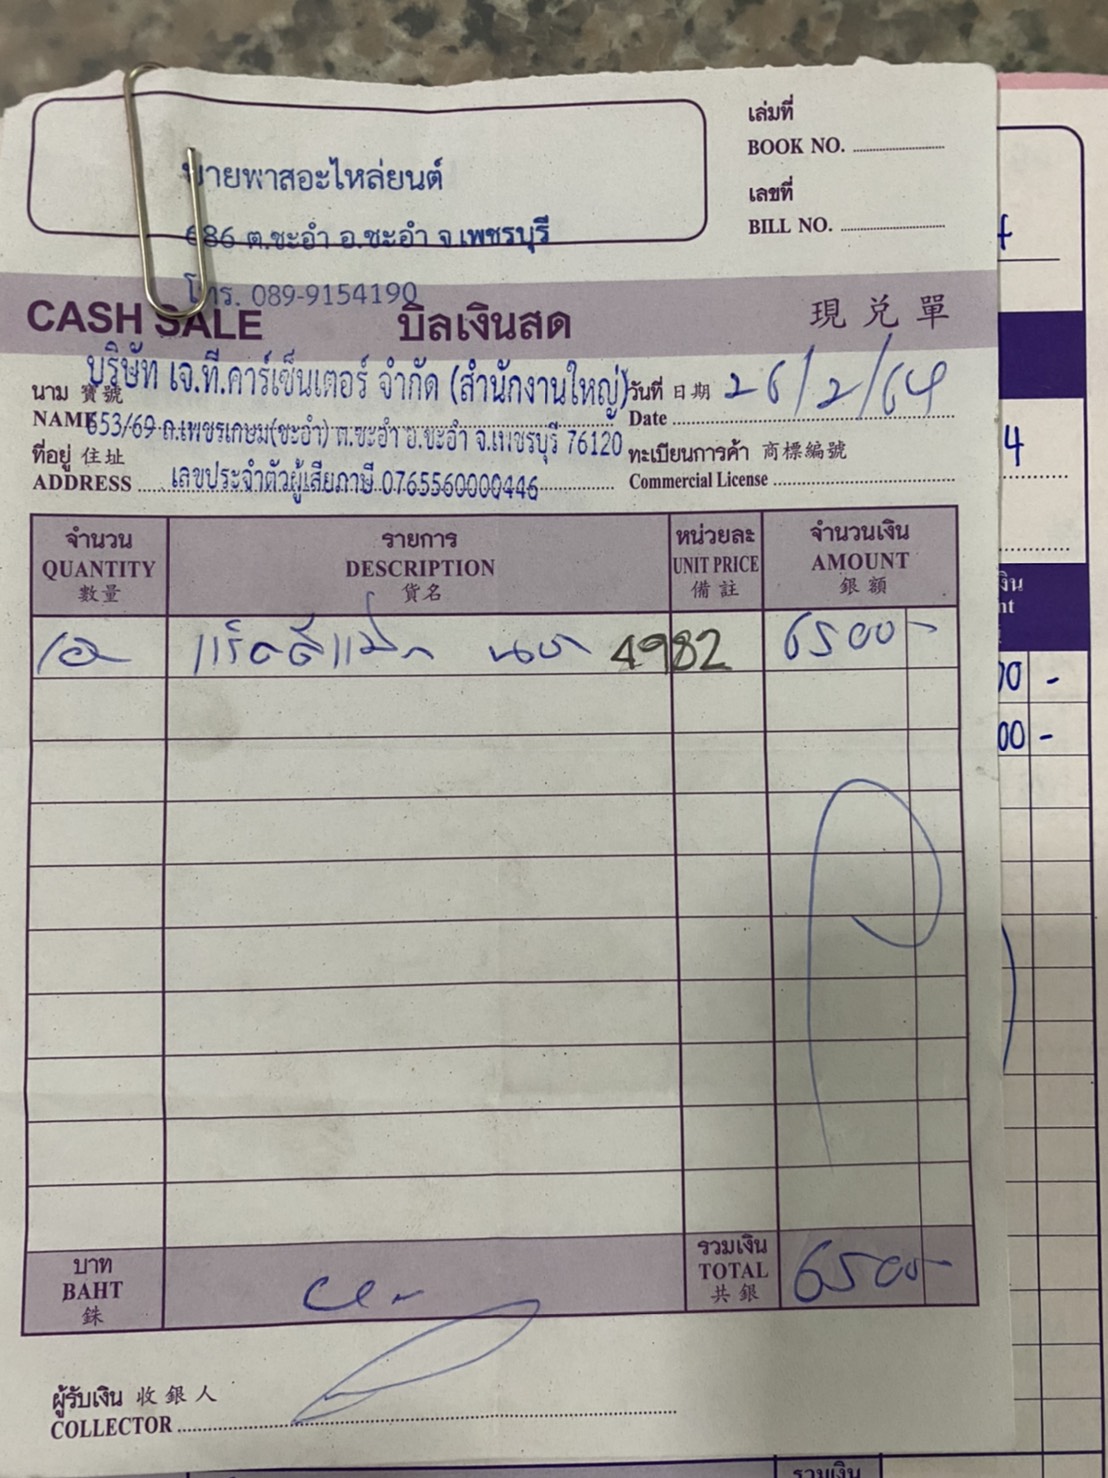 เล่มที่
BOOK NO.
พายพาสอะไหล่ยนต์
เลขที่
BILL NO.
686 ต.ชะอำ อ.ชะอำ จ.เพชรบุรี
โทร. 089-9154190
CASH SALE บิลเงินสด 現兑單
บริษัท เจ.ที.คาร์เซ็นเตอร์ จำกัด (สำนักงานใหญ่)
นาม 寶號 วันที่ 日期 26/2/64
NAME Date
653/69 ถ.เพชรเกษม(ชะอำ) ต.ชะอำ อ.ชะอำ จ.เพชรบุรี 76120
ที่อยู่ 住址 ทะเบียนการค้า 商標編號
ADDRESS เลขประจำตัวผู้เสียภาษี 0765560000446 Commercial License
จำนวน รายการ หน่วยละ จำนวนเงิน
QUANTITY DESCRIPTION UNIT PRICE AMOUNT
數量 貨名 備註 銀額
4982 6500-
00 -
00 -
บาท รวมเงิน
BAHT TOTAL 6500-
銖 共銀
ผู้รับเงิน 收銀人
COLLECTOR
รวมเงิน